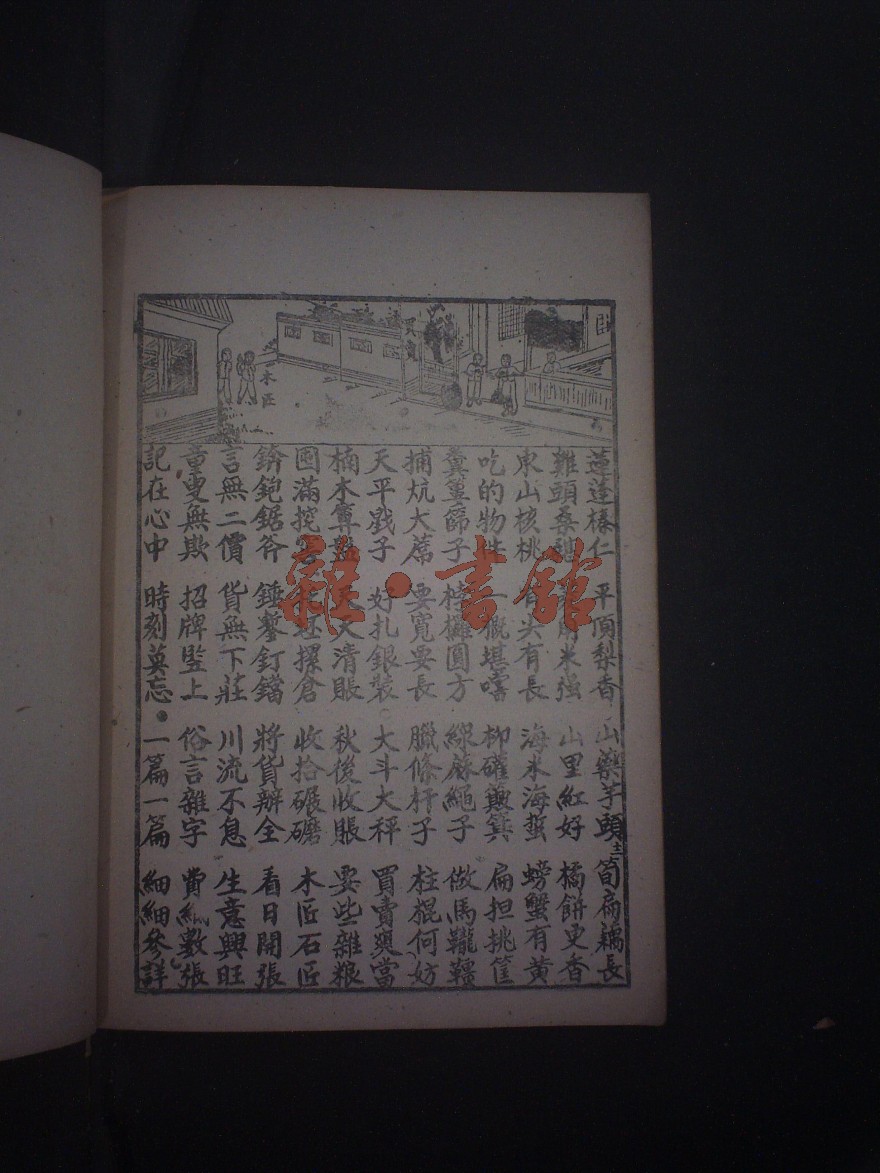 買賣
木匠
蓮蓬榛仁 平頂梨香 山藥芋頭 筍扁藕長
雞頭桑椹 米強 山里紅好 橘餅更香
東山核桃 有尖有長 海米海蜇 螃蟹有黃
吃的物件 一概堪嚐 柳礶簸箕 扁担挑筐
糞篁篩子 圓方 線蔴繩子 做馬韉韁
捕炕大蓆 要寬要長 臘條杆子 柱棍何妨
天平戥子 好扎銀裝 大斗大秤 買賣興當
楠木算盤 天天清賬 秋後收賬 要些雜粮
囤滿挖窖 坯摞倉 收拾碾磨 木匠石匠
錛鉋鋸斧 錘鏨釘鐺 將貨辦全 看日開張
言無二價 貨無下莊 川流不息 生意興旺
童叟無欺 招牌竪上 俗言雜字 費紙數張
記在心中 時刻莫忘 一篇一篇 細細參詳
十二
雜·書館